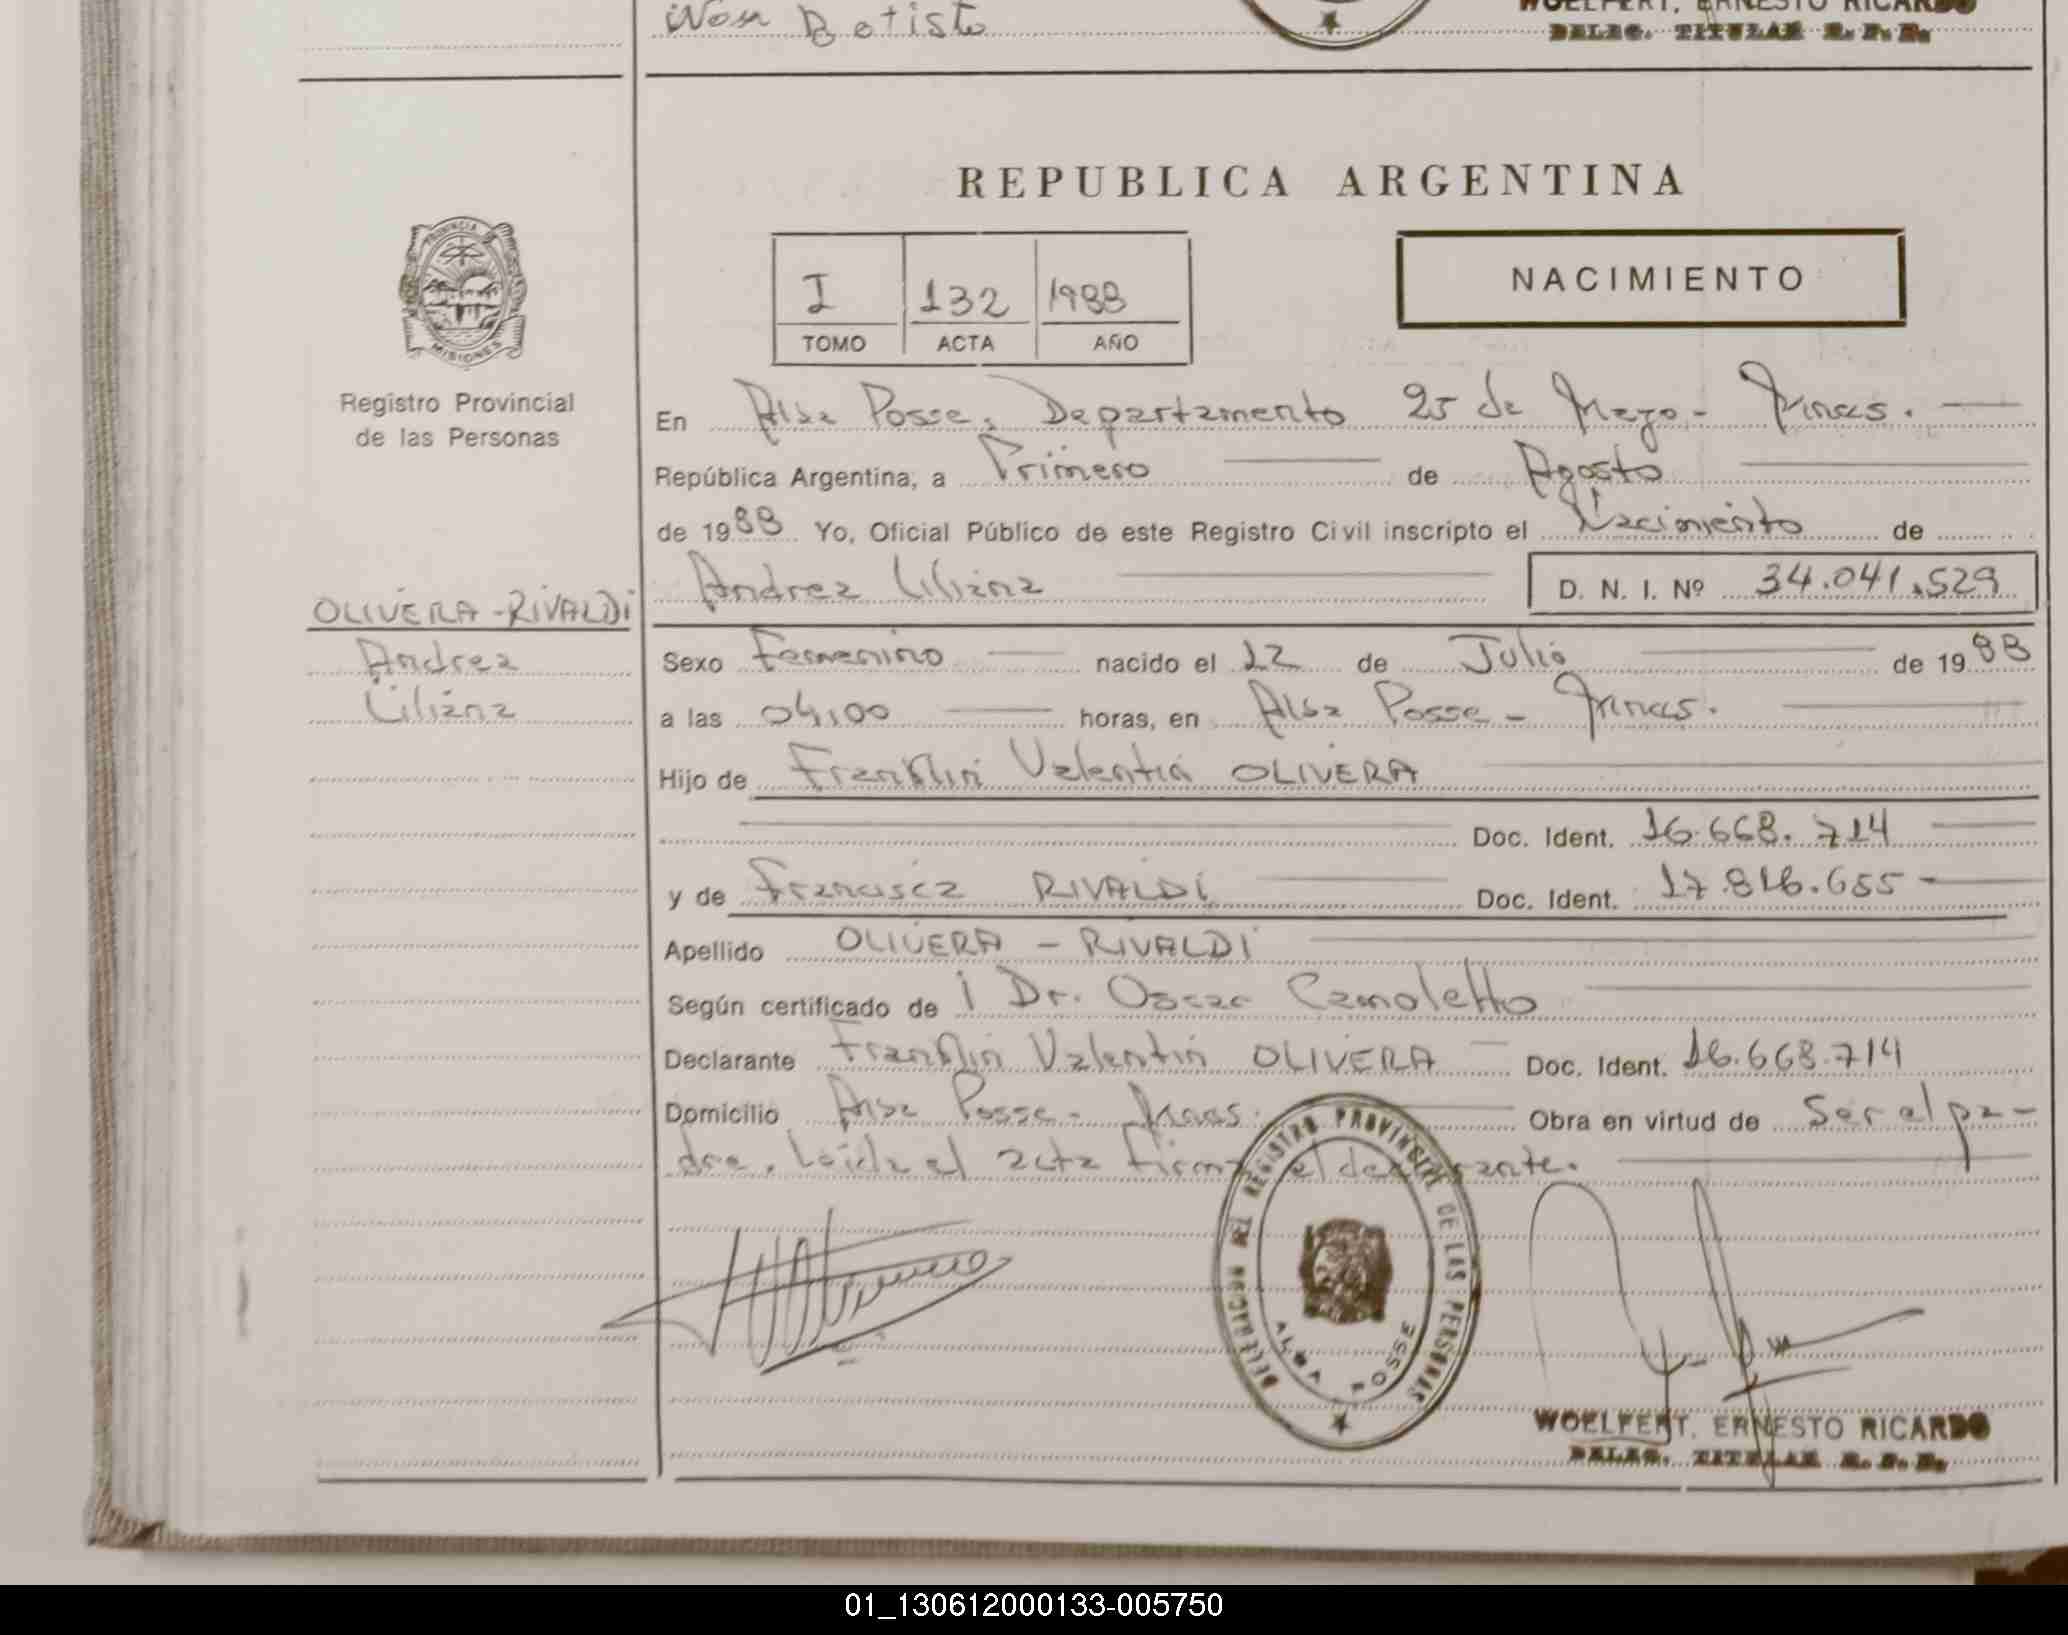 Batista
WOELFERT, ERNESTO RICARDO
DELEG. TITULAR R. P. P.
REPUBLICA ARGENTINA
PROVINCIA DE
MISIONES
Registro Provincial
de las Personas
I 132 1988
TOMO ACTA AÑO
NACIMIENTO
En Alba Posse, Departamento 25 de Mayo - Mnes.
República Argentina, a Primero de Agosto
de 1988 Yo, Oficial Público de este Registro Civil inscripto el Nacimiento de
Andrea Liliana D. N. I. Nº 34.041.529
OLIVERA - RIVALDI
Andrea
Liliana
Sexo Femenino nacido el 12 de Julio de 1988
a las 04,00 horas, en Alba Posse - Mnes.
Hijo de Franklin Valentin OLIVERA
Doc. Ident. 16.668.714
y de Francisca RIVALDI Doc. Ident. 17.816.655 -
Apellido OLIVERA - RIVALDI
Según certificado de Dr. Oscar Camoletto
Declarante Franklin Valentin OLIVERA Doc. Ident. 16.668.714
Domicilio Alba Posse - Mnes. Obra en virtud de Ser el pa-
dre. Leida el acta firma el declarante.
DELEGACION DEL REGISTRO PROVINCIAL DE LAS PERSONAS
ALBA POSSE
WOELFERT, ERNESTO RICARDO
DELEG. TITULAR R. P. P.
01_130612000133-005750